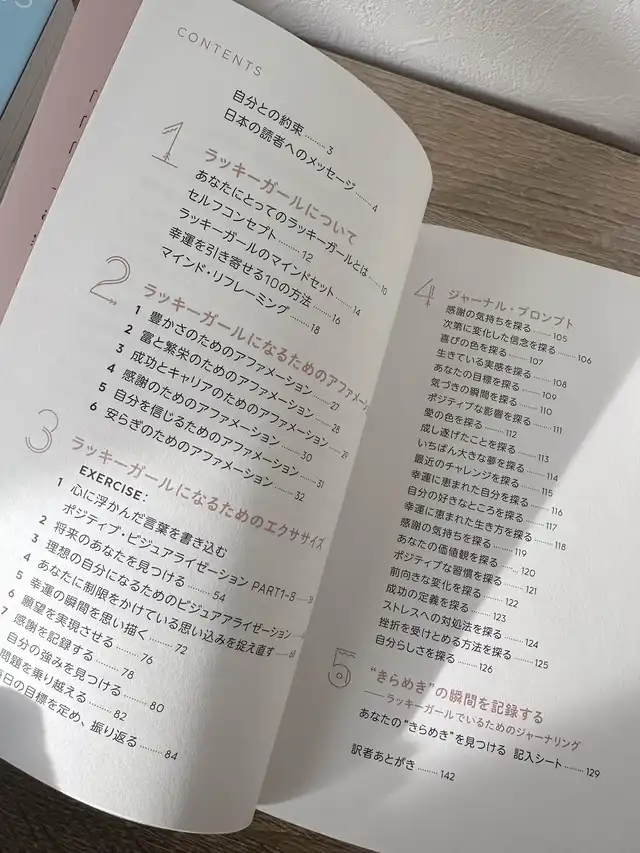 CONTENTS
自分との約束………3
日本の読者へのメッセージ………4
1
ラッキーガールについて
あなたにとってのラッキーガールとは………10
セルフコンセプト………12
ラッキーガールのマインドセット………14
幸運を引き寄せる10の方法………16
マインド・リフレーミング………18
2
ラッキーガールになるためのアファメーシ
1 豊かさのためのアファメーション………27
2 富と繁栄のためのアファメーション………28
3 成功とキャリアのためのアファメーション………29
4 感謝のためのアファメーション………30
5 自分を信じるためのアファメーション………31
6 安らぎのためのアファメーション………32
3
ラッキーガールになるためのエクササイズ
EXERCISE:
1 心に浮かんだ言葉を書き込む
ポジティブ・ビジュアライゼーション PART1-8
2 将来のあなたを見つける………54
3 理想の自分になるためのビジュアライゼーション
4 あなたに制限をかけている思い込みを捉え直す
5 幸運の瞬間を思い描く………72
6 願望を実現させる………76
7 感謝を記録する………78
自分の強みを見つける………80
問題を乗り越える………82
日の目標を定め、振り返る………84
4
ジャーナル・プロンプト
感謝の気持ちを探る………105
次第に変化した信念を探る………106
喜びの色を探る………107
生きている実感を探る………108
あなたの目標を探る………109
気づきの瞬間を探る………110
ポジティブな影響を探る………111
愛の色を探る………112
成し遂げたことを探る………113
いちばん大きな夢を探る………114
最近のチャレンジを探る………115
幸運に恵まれた自分を探る………116
自分の好きなところを探る………117
幸運に恵まれた生き方を探る………118
感謝の気持ちを探る………119
あなたの価値観を探る………120
ポジティブな習慣を探る………121
前向きな変化を探る………122
成功の定義を探る………123
ストレスへの対処法を探る………124
挫折を受けとめる方法を探る………125
自分らしさを探る………126
5
"きらめき"の瞬間を記録する
――ラッキーガールでいるためのジャーナリング
あなたの"きらめき"を見つける 記入シート………129
訳者あとがき………142